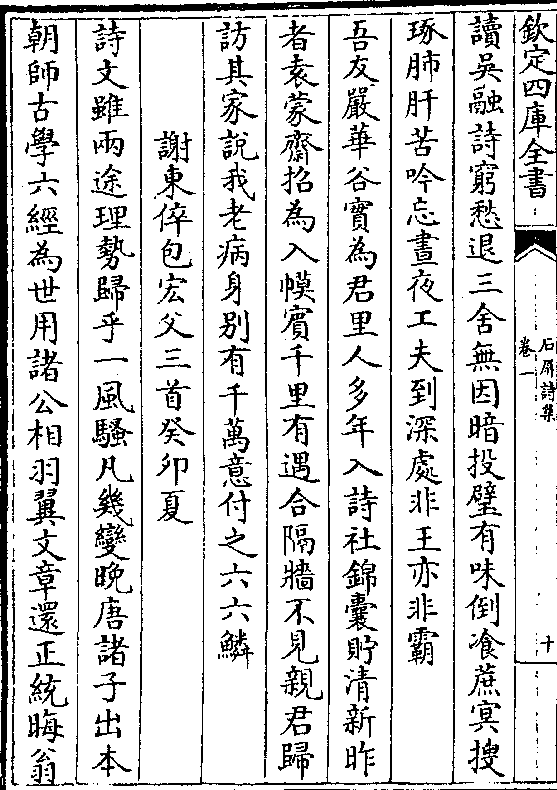 欽定四庫全書
石屏詩集
卷一
十
讀吳融詩窮愁退三舍無因暗投璧有味倒飡蔗冥搜
琢肺肝苦吟忘晝夜工夫到深處非王亦非霸
吾友嚴華谷實為君里人多年入詩社錦囊貯清新昨
者袁蒙齋招為入幙賓千里有遇合隔牆不見親君歸
訪其家說我老病身别有千萬意付之六六鱗
謝東倅包宏父三首癸卯夏
詩文雖兩途理勢歸乎一風騷凡幾變晚唐諸子出本
朝師古學六經為世用諸公相羽翼文章還正統晦翁